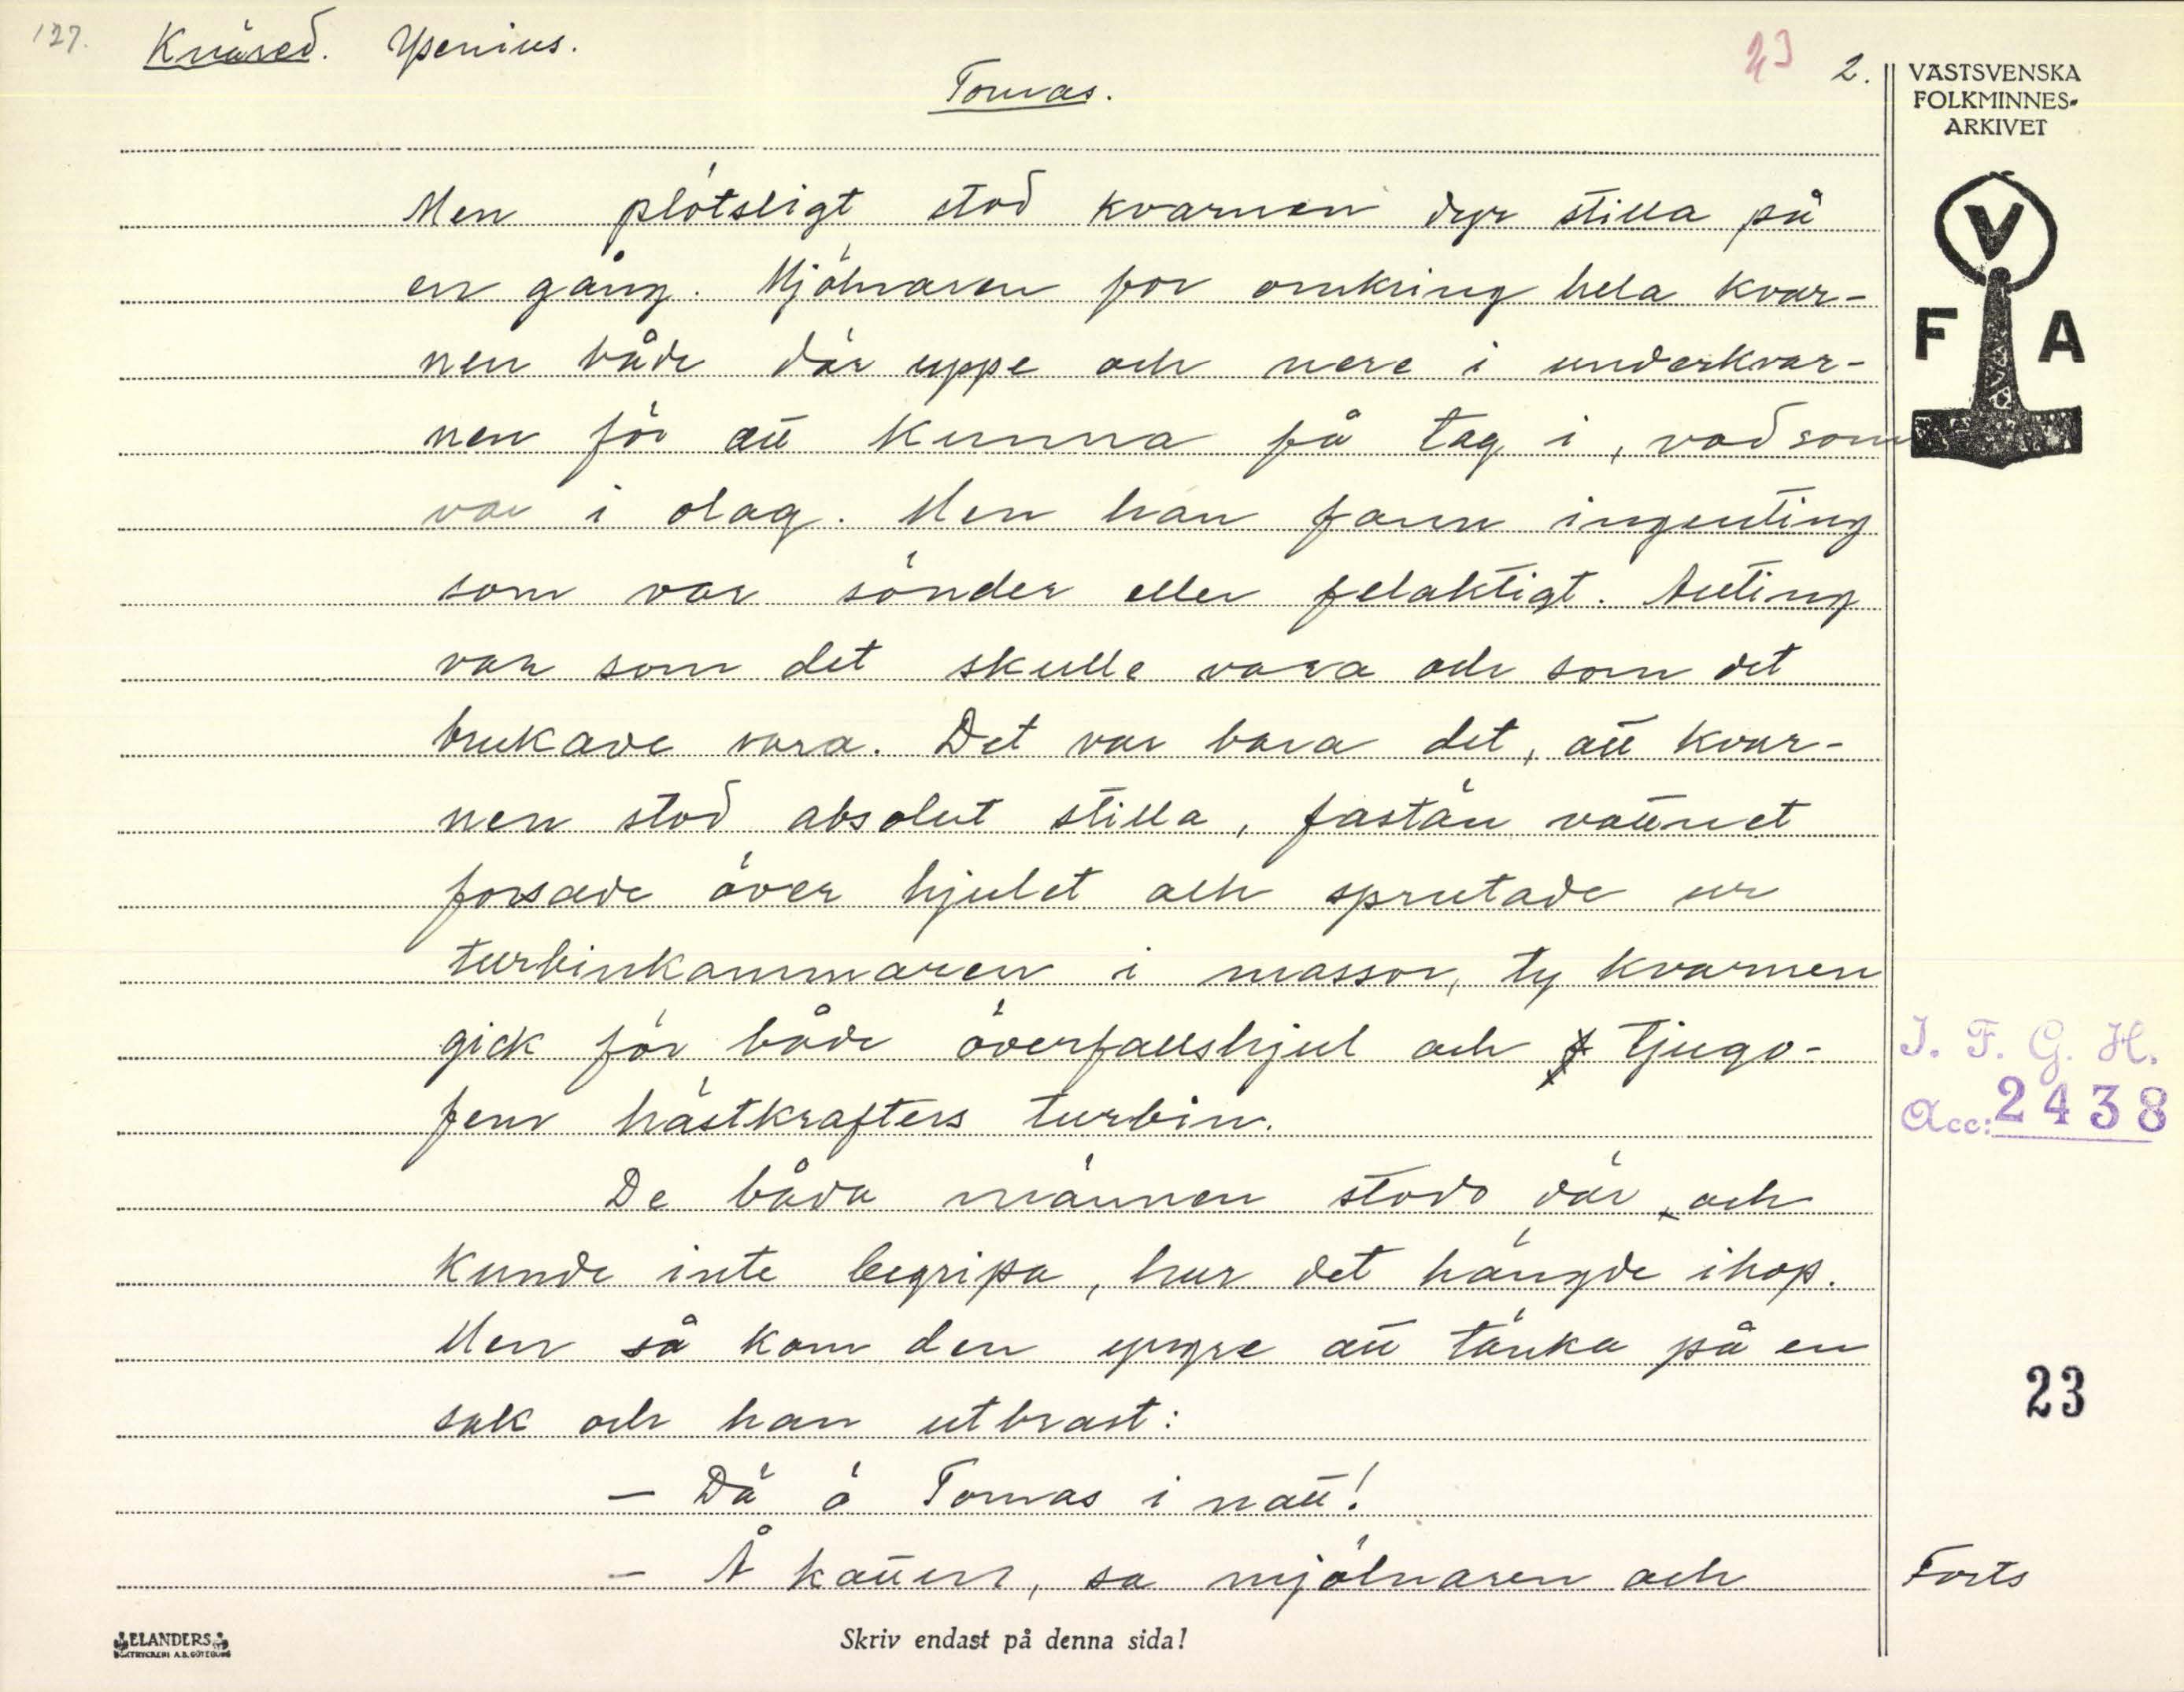 127. Knäred. Ysenius. 23 2.
Tomas.
VÄSTSVENSKA
FOLKMINNES-
ARKIVET
V
F A
Men plötsligt stod kvarnen dyr stilla på
en gång. Mjölnaren for omkring hela kvar-
nen både där uppe och nere i underkvar-
nen för att kunna få tag i, vad som
var i olag. Men han fann ingenting
som var sönder eller felaktigt. Allting
var som det skulle vara och som det
brukade vara. Det var bara det, att kvar-
nen stod absolut stilla, fastän vattnet
forsade över hjulet och sprutade ur
turbinkammaren i massor, ty kvarnen
gick för både överfallshjul och tjugo-
fem hästkrafters turbin.
De båda männen stodo där och
kunde inte begripa, hur det hängde ihop.
Men så kom den yngre att tänka på en
sak och han utbrast:
- Dä ä Tomas i natt!
- Å katten, sa mjölnaren och
I. F. G. H.
Acc: 2438
23
Forts
ELANDERS
BOKTRYCKERI A.B. GÖTEBORG
Skriv endast på denna sida!